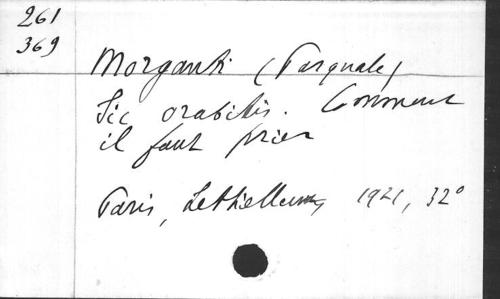 261
369
Morganti (Pasquale)
Sic orabitis. Comment
il faut prier
Paris, Lethielleux, 1921, 32°